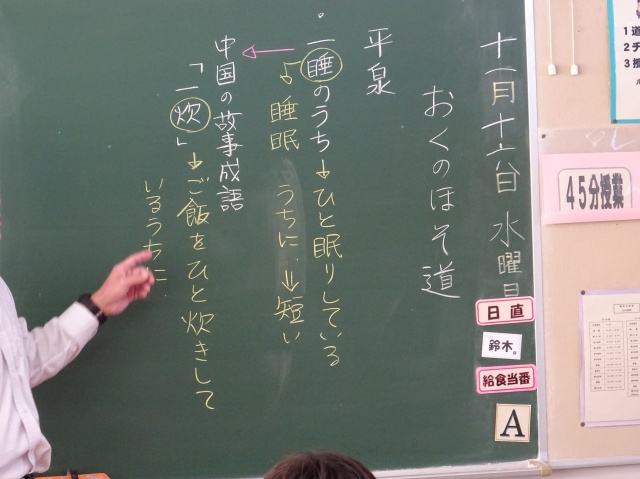 十一月十六日 水曜日
おくのほそ道
平泉
・一睡のうち→ひと眠りしている
睡眠 うちに⇒短い
中国の故事成語
「一炊」→ご飯をひと炊きして
いるうちに.
日直
鈴木
給食当番
A
45分授業
1道
2チ
3授